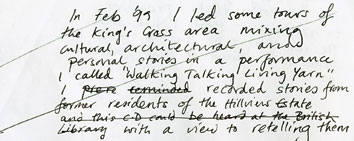 In Feb '99 I led some tours of
the King's Cross area mixing
cultural, architectural, and
personal stories in a performance
I called "Walking Talking Living Yarn"
I recorded stories from
former residents of the Hillview Estate
and this CD could be heard at the British
Library with a view to retelling them